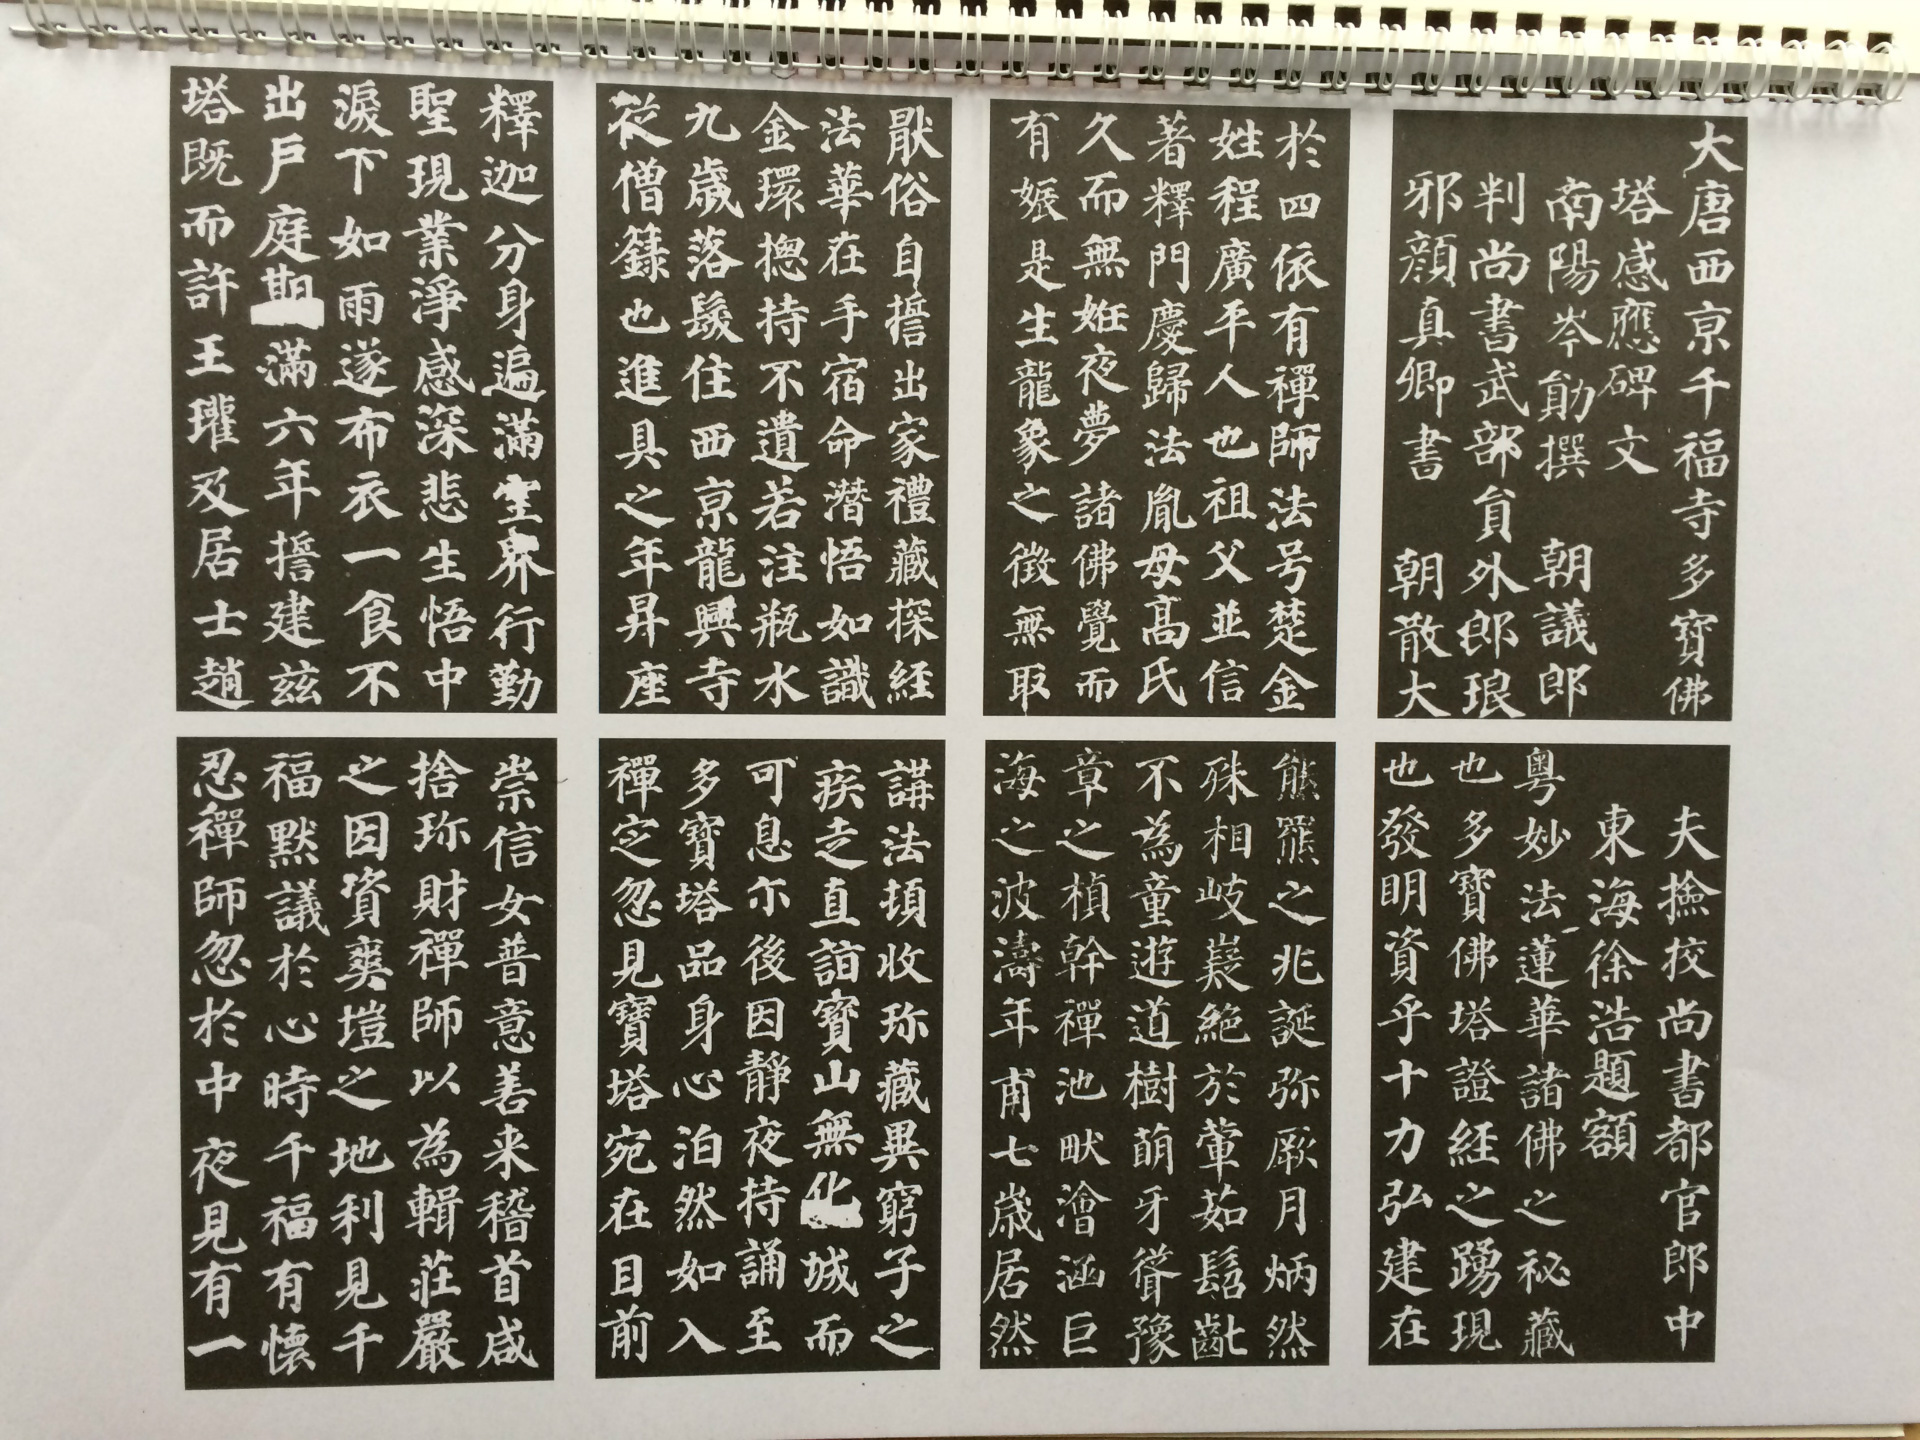 大唐西京千福寺多寶佛
塔感應碑文
南陽岑勛撰　朝議郎
判尚書武部貟外郎琅
邪顏真卿書　朝散大
夫撿挍尚書都官郎中
東海徐浩題額
粤妙法蓮華諸佛之祕藏
也多寶佛塔證經之踴現
也發明資乎十力弘建在
於四依有禪師法号楚金
姓程廣平人也祖父並信
著釋門慶歸法胤母高氏
久而無妊夜夢諸佛覺而
有娠是生龍象之徵無取
熊羆之兆誕弥厥月炳然
殊相岐嶷絕於葷茹髫齔
不為童遊道樹萌牙聳豫
章之楨幹禪池畎澮涵巨
海之波濤年甫七歲居然
厭俗自誓出家禮藏探經
法華在手宿命潛悟如識
金環揔持不遺若注瓶水
九歲落髮住西京龍興寺
從僧籙也進具之年昇座
講法頓收珎藏異窮子之
疾走直詣寶山無化城而
可息尒後因靜夜持誦至
多寶塔品身心泊然如入
禪定忽見寶塔宛在目前
釋迦分身遍滿空界行勤
聖現業淨感深悲生悟中
淚下如雨遂布衣一食不
出戶庭期滿六年誓建茲
塔既而許王瓘及居士趙
崇信女普意善来稽首咸
捨珎財禪師以為輯莊嚴
之因資爽塏之地利見千
福默議於心時千福有懷
忍禪師忽於中夜見有一